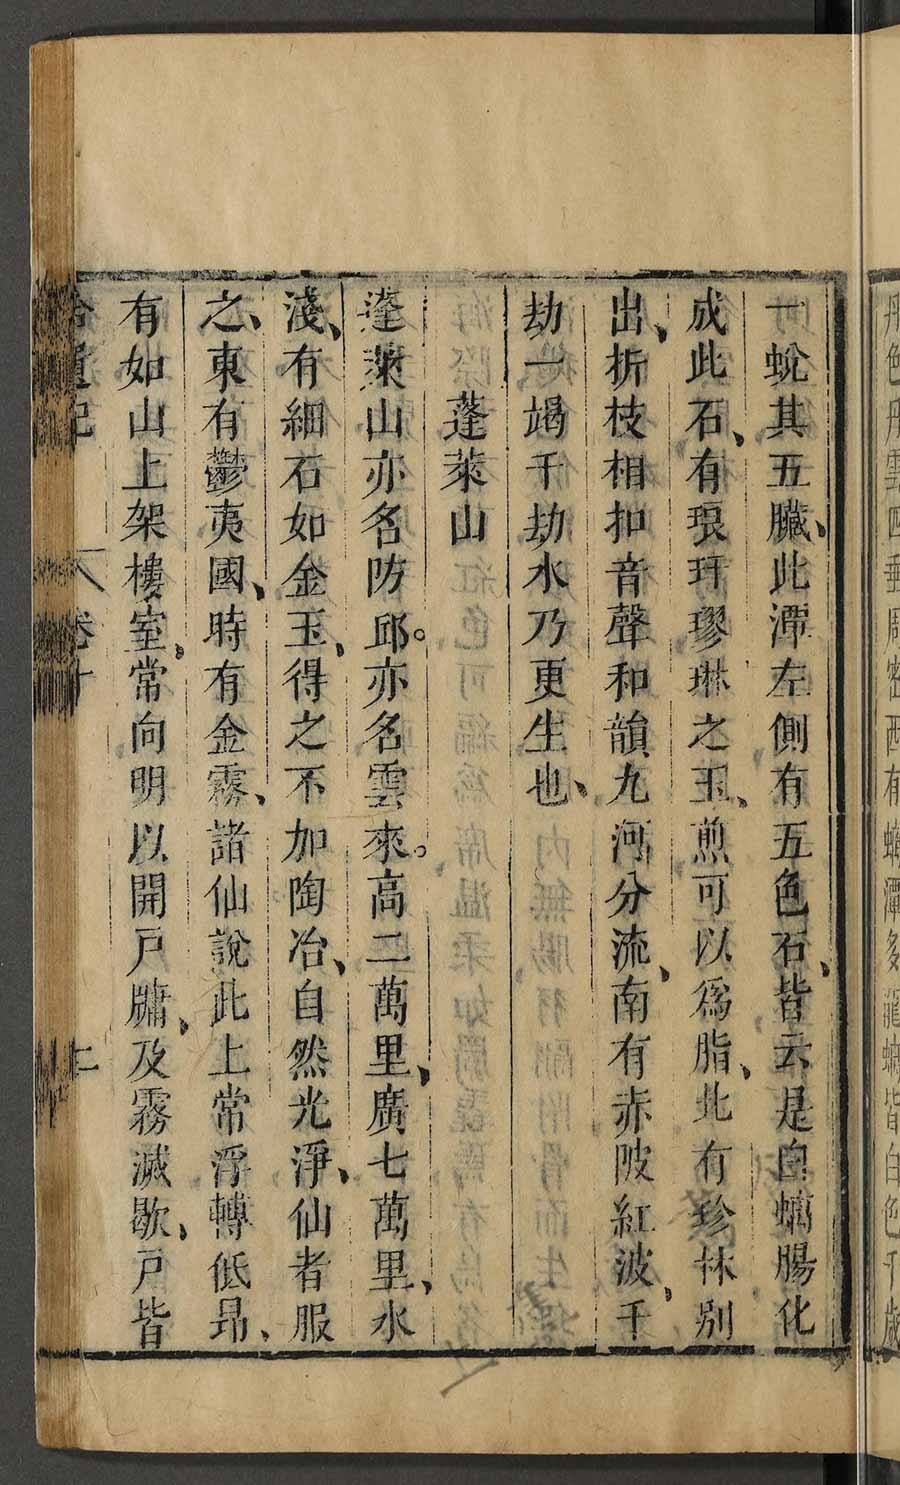 丹色丹雲四垂周密西有螭潭多龍螭皆白色千歲
一蛻其五臟、此潭左側有五色石、皆云是白螭腸化
成此石、有琅玕璆琳之玉、煎可以爲脂、北有珍林别
出、折枝相扣音聲和韻九河分流、南有赤陂紅波、千
劫一竭千劫水乃更生也、
蓬萊山
蓬萊山亦名防邱。亦名雲來。高二萬里、廣七萬里、水
淺、有細石如金玉、得之不加陶冶、自然光淨、仙者服
之、東有鬱夷國、時有金霧、諸仙說此上常浮轉低昂、
有如山上架樓室、常向明以開戸牖、及霧滅歇、戸皆
拾遺記 卷十 二